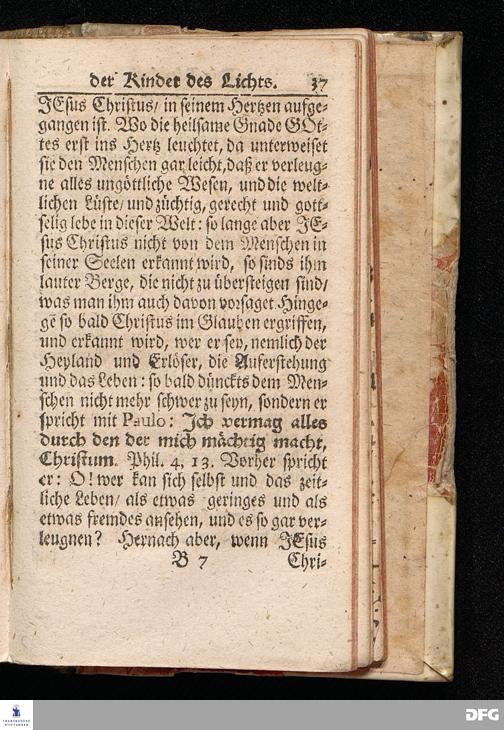 der Kinder des Lichts. 37
JEsus Christus/ in seinem Hertzen aufge-
gangen ist. Wo die heilsame Gnade GOt-
tes erst ins Hertz leuchtet, da unterweiset
sie den Menschen gar leicht, daß er verleug-
ne alles ungöttliche Wesen, und die welt-
lichen Lüste/ und züchtig, gerecht und gott-
selig lebe in dieser Welt: so lange aber JE-
sus Christus nicht von dem Menschen in
seiner Seelen erkannt wird, so sinds ihm
lauter Berge, die nicht zu übersteigen sind/
was man ihm auch davon vorsaget. Hinge-
gē so bald Christus im Glauben ergriffen,
und erkannt wird, wer er sey, nemlich der
Heyland und Erlöser, die Auferstehung
und das Leben: so bald dünckts dem Men-
schen nicht mehr schwer zu seyn, sondern er
spricht mit Paulo: Jch vermag alles
durch den der mich mächtig macht,
Christum. Phil. 4, 13. Vorher spricht
er: O! wer kan sich selbst und das zeit-
liche Leben/ als etwas geringes und als
etwas fremdes ansehen, und es so gar ver-
leugnen? Hernach aber, wenn JEsus
B 7 Chri-
FRANCKESCHE
STIFTUNGEN
DFG